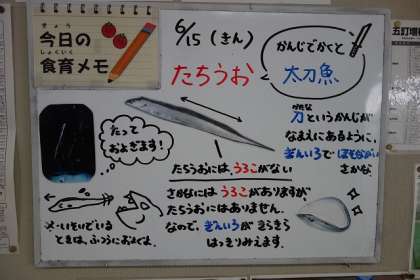 きょう
今日の
しょくいく
食育メモ
6/15(きん)
たちうお
かんじでかくと
太刀魚
かたな
刀というかんじが
なまえにあるように、
ぎんいろでほそながい
さかな。
たって
およぎます!
たちうおには、うろこがない
さかなにはうろこがありますが、
たちうおにはありません。
なので、ぎんいろがきらきら
はっきりみえます。
いそいでいる
ときは、ふつうにおよぐよ。